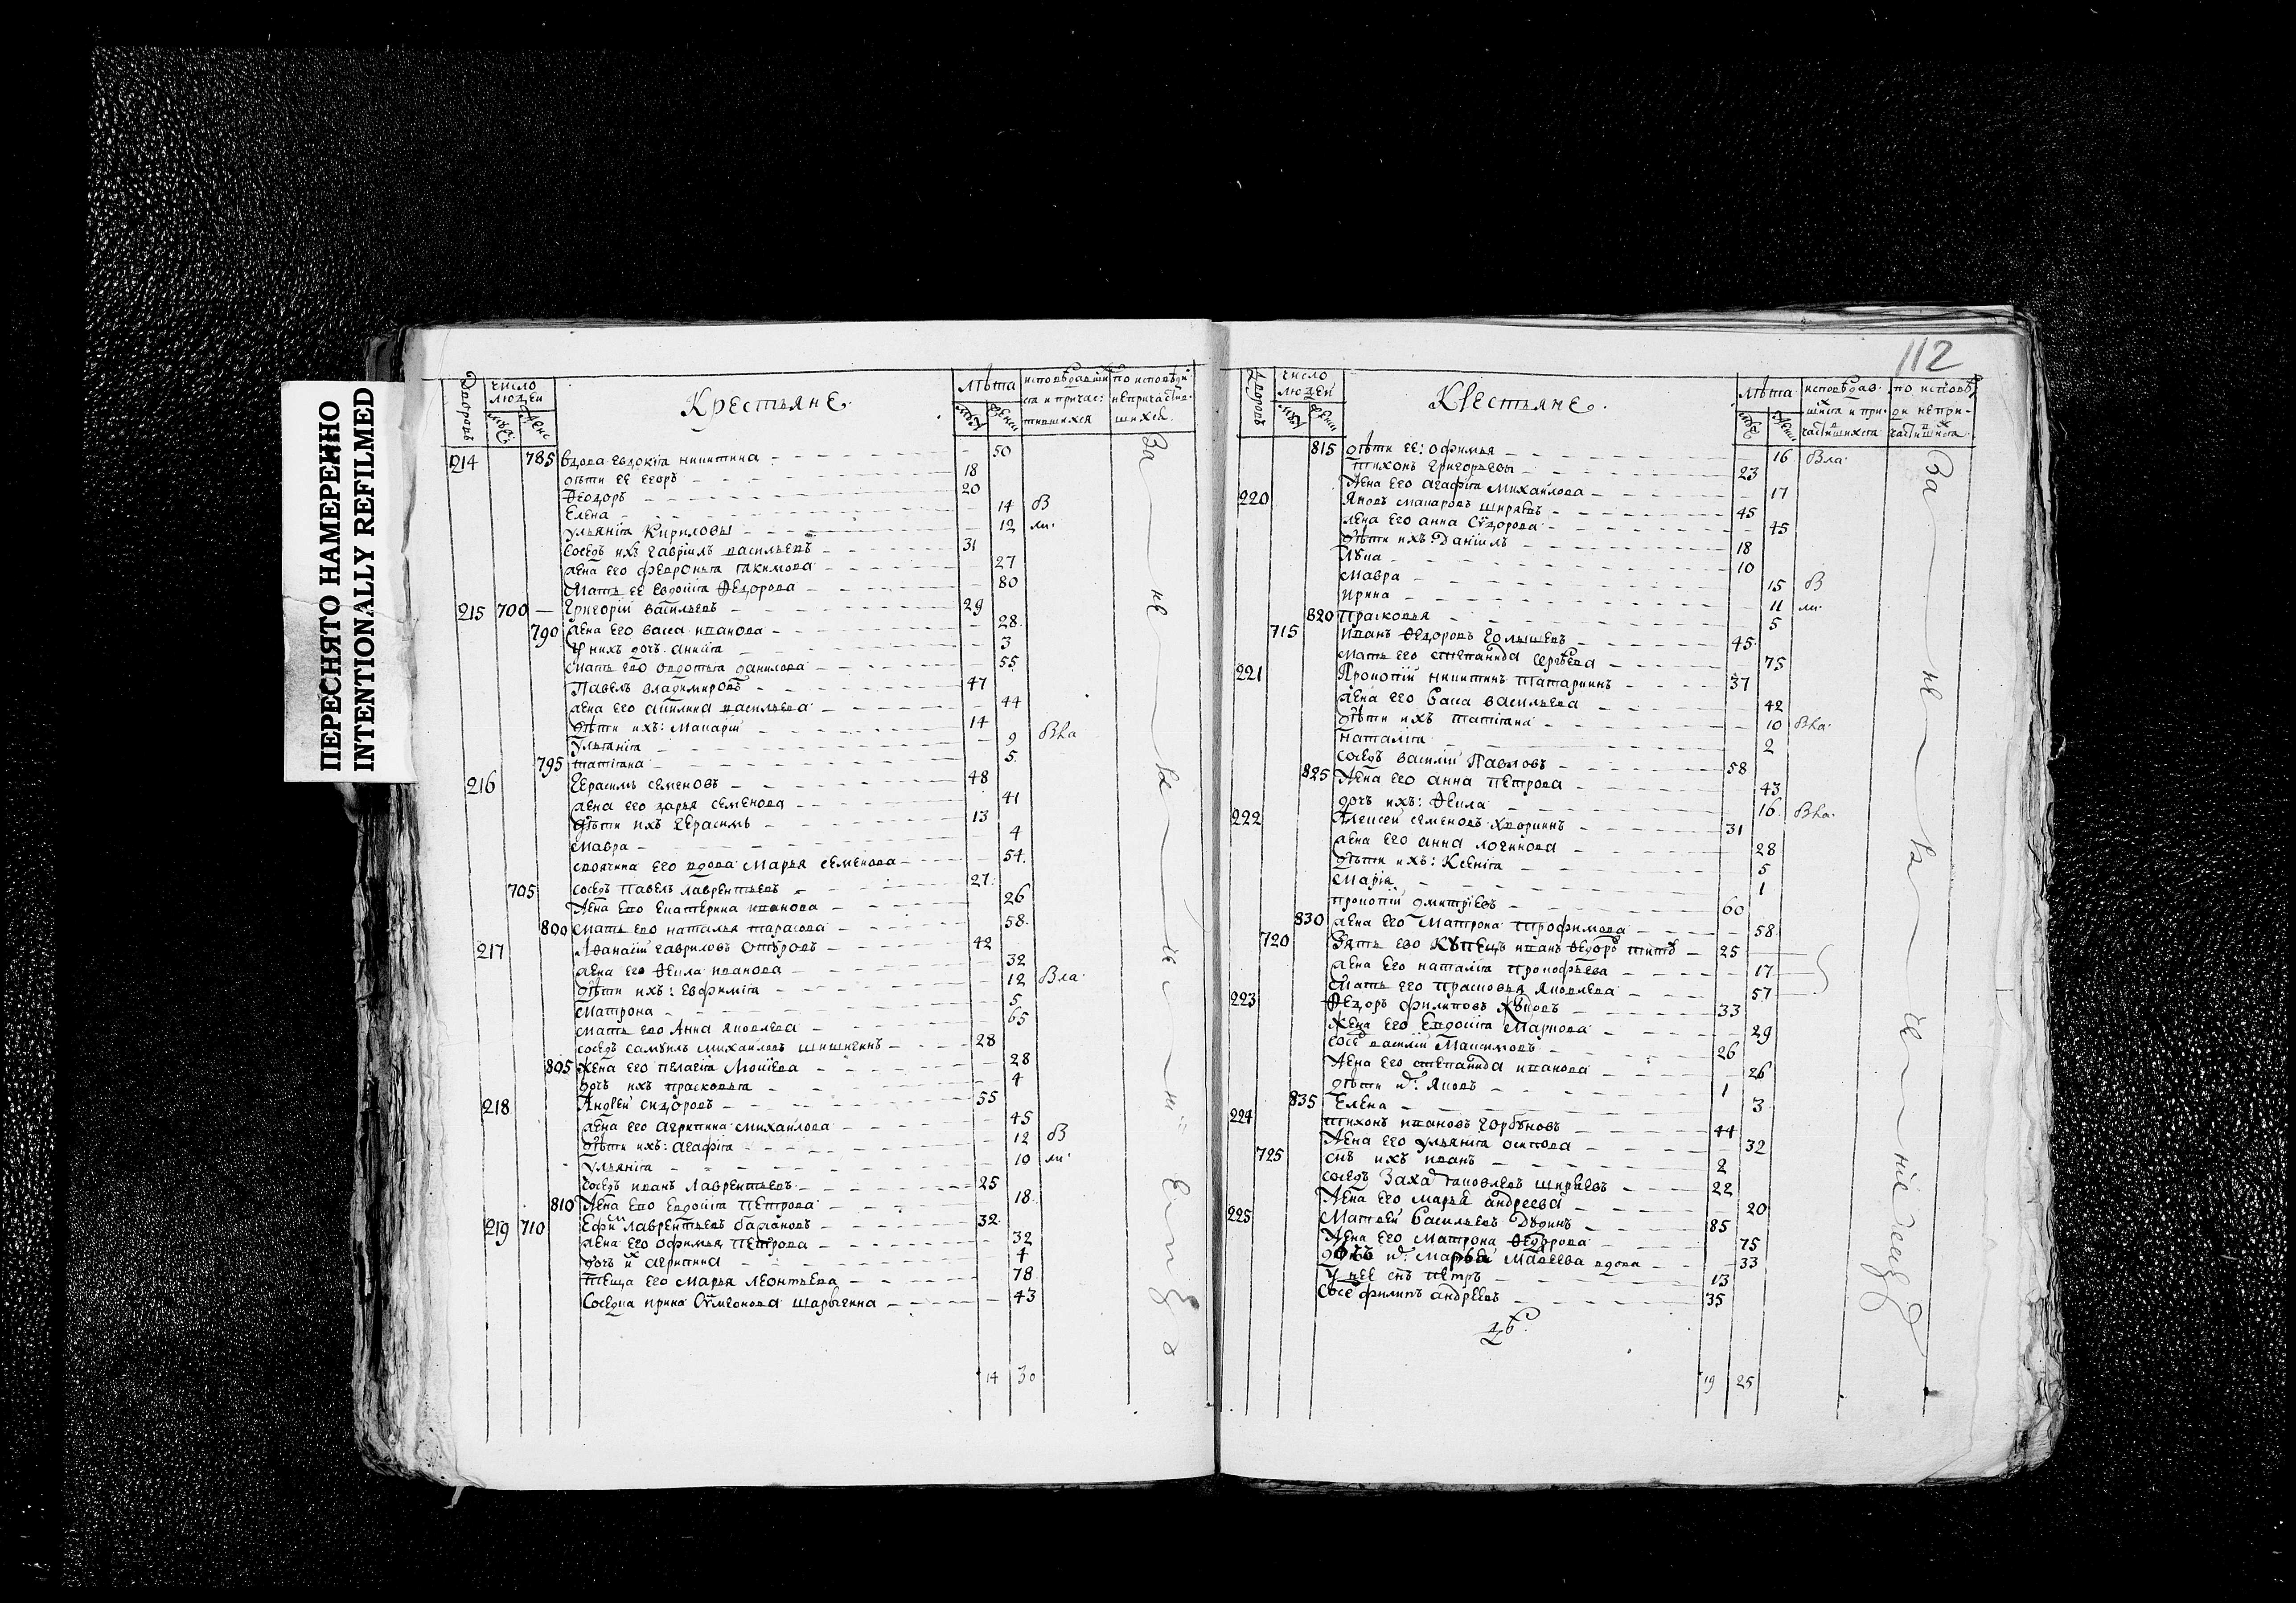 ПЕРЕСНЯТО НАМЕРЕННО
INTENTIONALLY REFILMED
112
число людеи
Крестьяне.
Лѣта
214 785 вдова Евдокіа никитина 50
дѣти ее Егоръ 18
Ѳеодоръ 20
Елена 14 В
Ульяніа Кириловы 12 ли.
соседъ ихъ гавріилъ васильевъ 31
жена его февроньіа іакимова 27
Мать ее Евдокіа Ѳедорова 80
215 700 Григоріи васильевъ 29
790 жена его васса иванова 28
У нихъ дочь аникіа 3
мать его овдотьіа данилова 55
Павелъ владимировъ 47
жена его акилина васильева 44
дѣти ихъ: Макаріи 14
Ульяніа 9 Вла
795 татіана 5
216 Герасимъ семеновъ 48
жена его дарья семенова 41
дѣти ихъ Герасимъ 13
Мавра 4
своячина его вдова Марья семенова 54
705 соседъ павелъ лаврентьевъ 27
жена ево Екатерина иванова 26
800 мать ево наталья тарасова 58
217 Аѳанасіи гавриловъ 42
жена его Ѳекла иванова 32
дѣти ихъ: Евфиміа 12 Вла.
Матрона 5
мать ево Анна яковлева 65
соседъ самуилъ михаиловъ шишигинъ 28
805 жена его пелагіа Моисѣева 28
дочь ихъ прасковьіа 4
218 Андреи сидоровъ 55
жена его агрипина михаилова 45
дѣти ихъ: агафіа 12 В
Ульяніа 10 ли.
соседъ иванъ лаврентьевъ 25
810 жена ево Евдокіа петрова 18
219 710 Ефим лаврентьевъ баранов 32
жена его офимья петрова 32
дочь их агрипина 4
теща его марья леонтьева 78
соседка ирина Сѵмеонова шарыгина 43
14 30
число людеи
Крестьяне.
Лѣта
815 дѣти ее: офимья 16 Вла.
тихонъ григорьевы 23
жена его агафіа михаилова 17
220 яковъ макаровъ ширяевъ 45
жена его анна Сѵдорова 45
дѣти ихъ Даніилъ 18
Лука 10
мавра 15 В
ирина 11 ли.
820 прасковья 5
715 иванъ Ѳедоровъ Голышевъ 45
мать его степанида сергѣева 75
221 Прокопіи никитинъ татаринъ 37
жена его васса васильева 42
дѣти ихъ татіана 10 Вла.
наталіа 2
соседъ василіи Павловъ 58
825 жена его анна петрова 43
дочь ихъ: Ѳекла 16 Вла.
222 Алексеи семеновъ хворинъ 31
жена его анна логинова 28
дѣти ихъ: Ксеніа 5
маріа 1
прокопіи дмитріевъ 60
830 жена его Матрона трофимова 58
720 Зять ево Купецъ иванъ Ѳедоров титов 25
жена его наталіа прокофьева 17
мать его прасковья яковлева 57
223 Ѳедоръ филиповъ жуковъ 33
жена его Евдокіа Маркова 29
сосед василіи Максимовъ 26
жена его степанида иванова 26
дѣти их: яковъ 1
835 Елена 3
224 тихонъ ивановъ горбуновъ 44
жена его ульяніа осипова 32
725 снъ ихъ иванъ 2
соседъ Заха яковлевъ ширяевъ 22
жена его марья андреева 20
225 Матвеи васильевъ Дудинъ 85
жена его Матрона Ѳедорова 75
дочь их марья Матвеева вдова 33
У нее снъ петръ 13
Сосед филипъ андреевъ 35
19 25